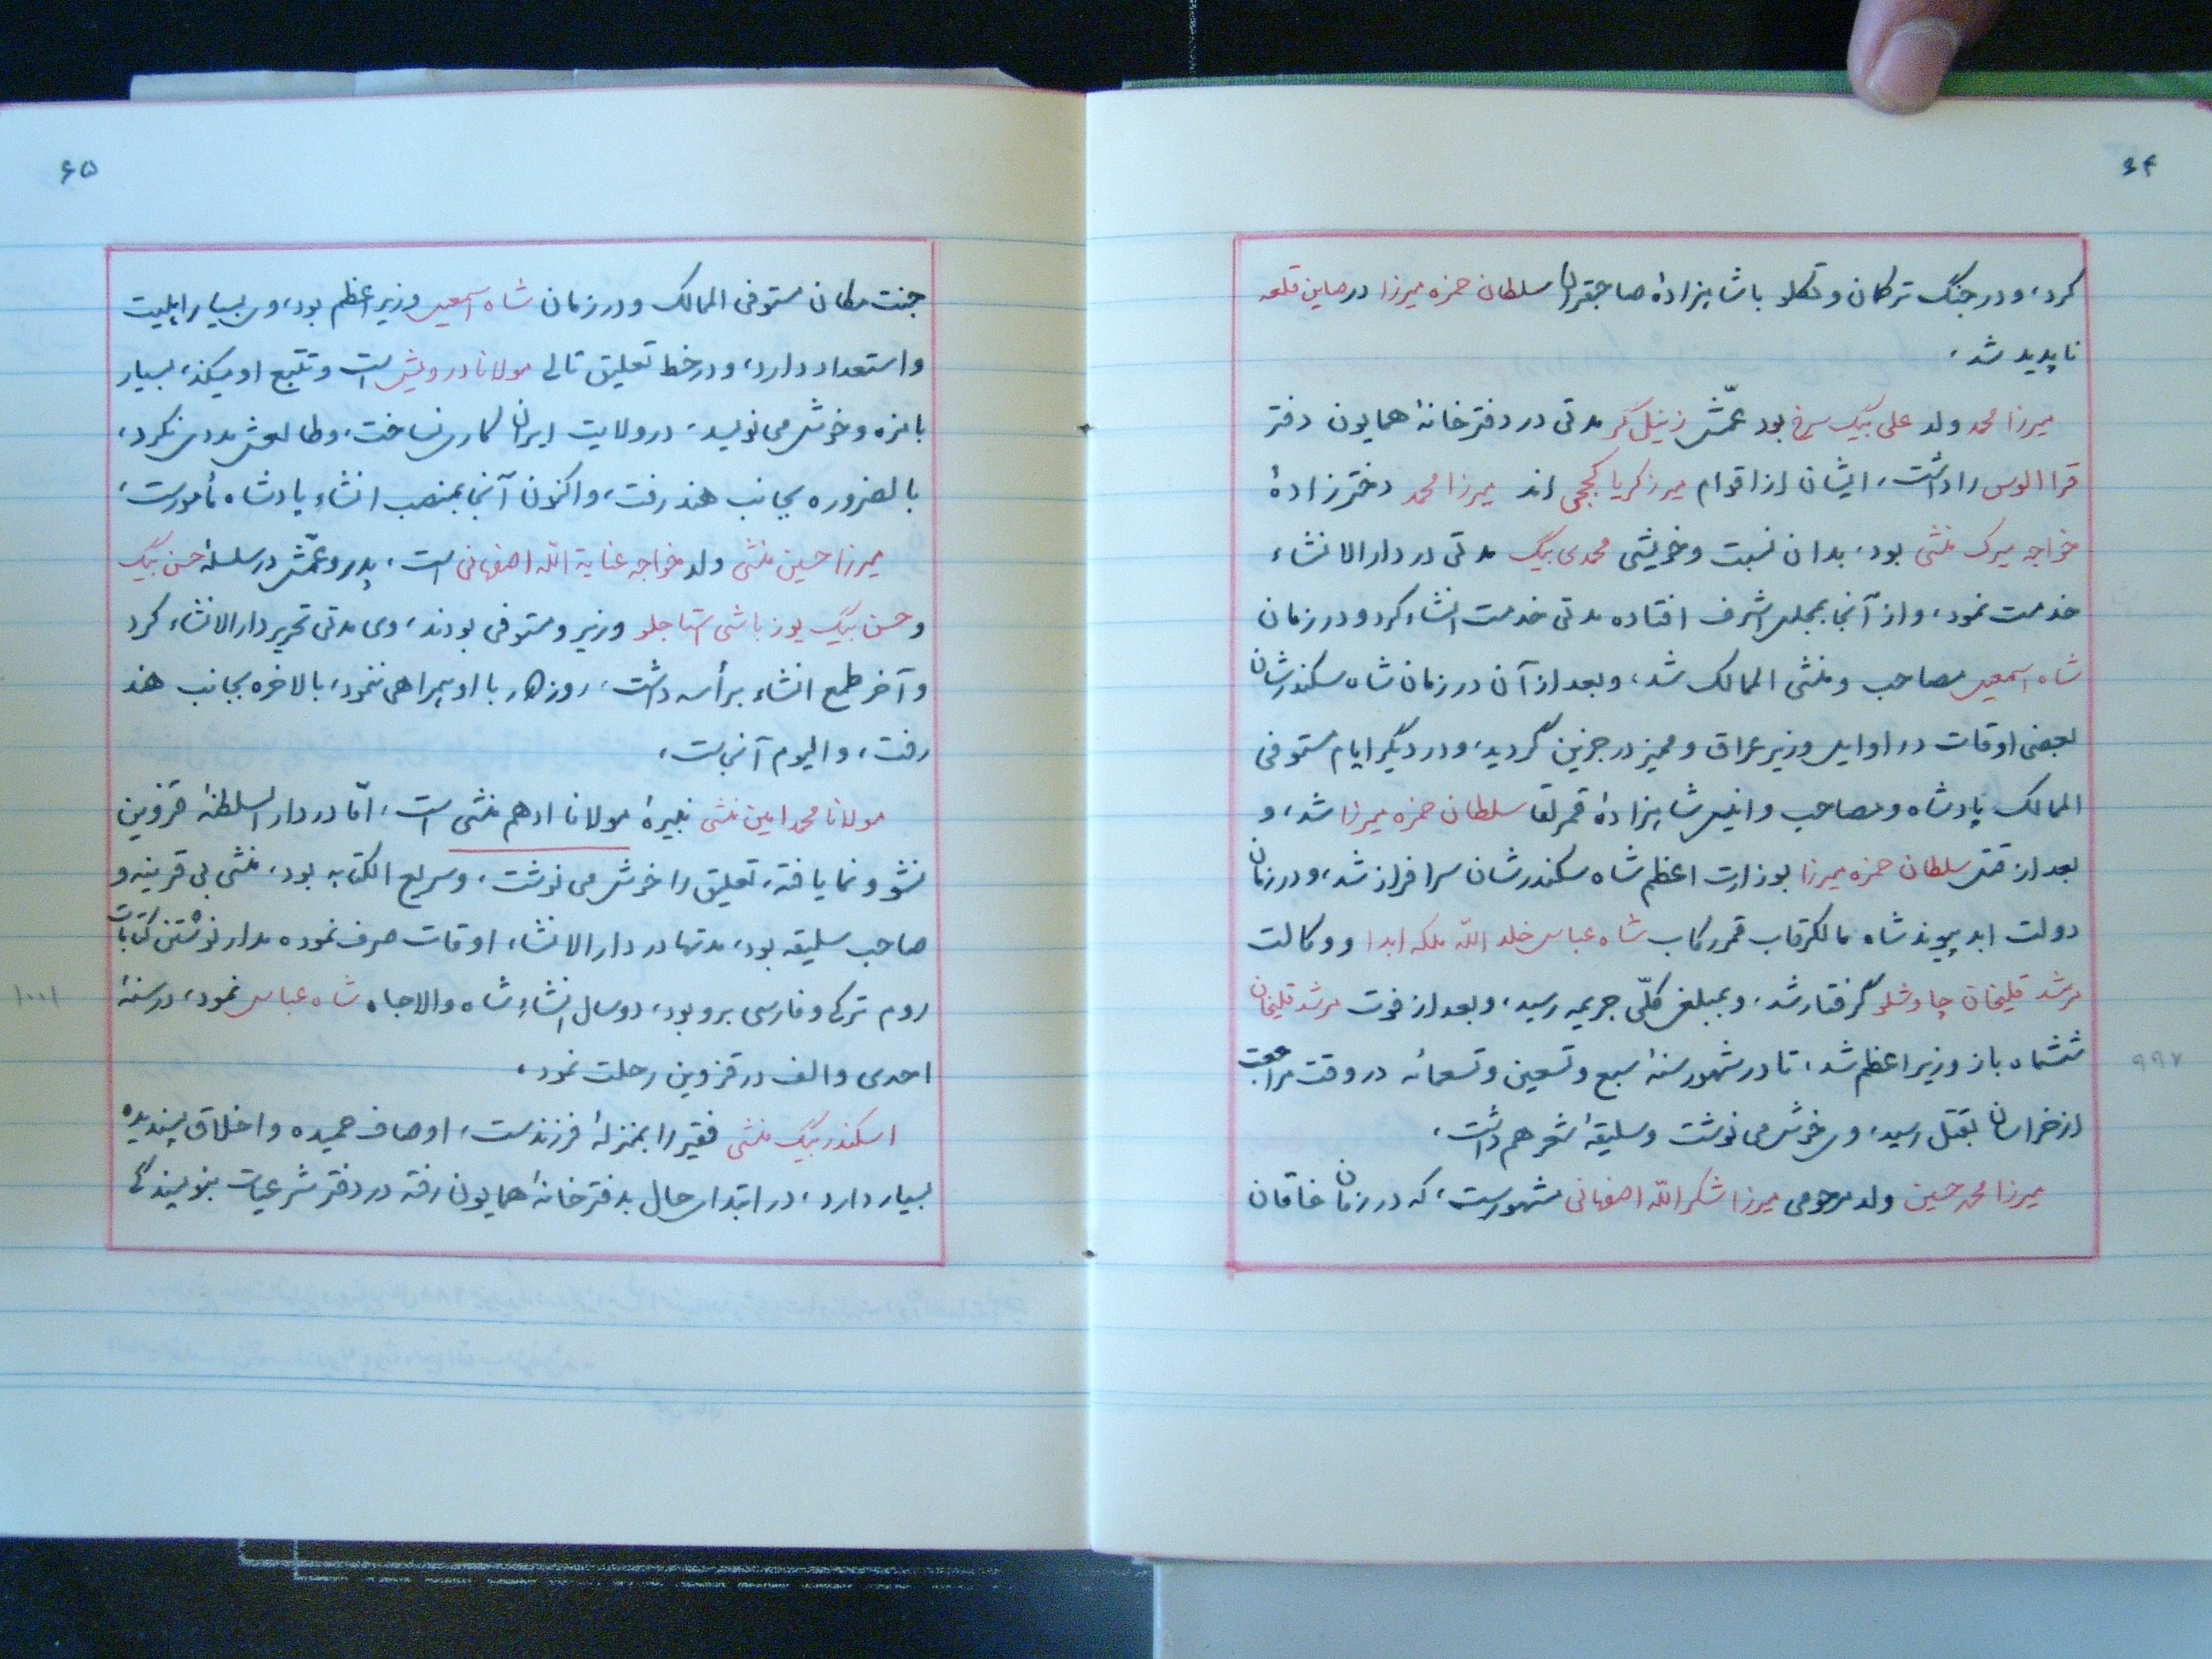 ۶۴
کرد، و در جنگ ترکمان و تکلو با شاهزادهٔ صاحبقران سلطان حمزه میرزا در صاین قلعه
ناپدید شد،
میرزا محمد ولد علی بیگ سرخ بود عمّش زنیل گر مدتی در دفترخانهٔ همایون دفتر
قرا الوس را داشت، ایشان از اقوام میرزکریا کججی اند میرزا محمد دخترزادهٔ
خواجه میرک منشی بود، بدان نسبت و خویشی محمدی بیگ مدتی در دارالانشاء
خدمت نمود، و از آنجا بمجلس اشرف افتاده مدتی خدمت انشاء کرد و در زمان
شاه اسمعیل مصاحب و منشی الممالک شد، و بعد از آن در زمان شاه سکندرشان
بعضی اوقات در اوایل وزیر عراق و ممیز درجزین گردید، و در دیگر ایام مستوفی
الممالک پادشاه و مصاحب و انیس شاهزادهٔ قمرلقا سلطان حمزه میرزا شد، و
بعد از قتل سلطان حمزه میرزا بوزارت اعظم شاه سکندرشان سرافراز شد، و در زمان
دولت ابد پیوند شاه مالکرقاب قمررکاب شاه عباس خلد الله ملکه ابدا و وکالت
مرشد قلیخان چاوشلو گرفتار شد، و بمبلغ کلّی جریمه رسید، و بعد از فوت مرشد قلیخان
ششماه باز وزیر اعظم شد، تا در شهور سنهٔ سبع و تسعین و تسعمائه در وقت مراجعت
۹۹۷
از خراسان بقتل رسید، وی خوش می نوشت و سلیقهٔ شعر هم داشت،
میرزا محمد حسین ولد مرحومی میرزا شکرالله اصفهانی مشهورست، که در زمان خاقان
۶۵
جنت مکان مستوفی الممالک و در زمان شاه اسمعیل وزیر اعظم بود، وی بسیار اهلیت
و استعداد دارد، و در خط تعلیق تالی مولانا درویش است و تتبع او میکند، بسیار
بامزه و خوش می نویسد، در ولایت ایران کاری نساخت، و طالعش مددی نکرد،
بالضروره بجانب هند رفت، و اکنون آنجا بمنصب انشاء پادشاه مأمورست،
میرزا حسین منشی ولد خواجه عنایة الله اصفهانی است، پدر و عمّش در سلسلهٔ حسن بیگ
و حسن بیگ یوزباشی استاجلو وزیر و مستوفی بودند، وی مدتی تحریر دارالانشاء کرد
و آخر طمع انشاء برأسه داشت، روزگار با او همراهی ننمود، بالاخره بجانب هند
رفت، و الیوم آنجاست،
مولانا محمد امین منشی نبیرهٔ مولانا ادهم منشی است، امّا در دارالسلطنهٔ قزوین
نشو و نما یافته، تعلیق را خوش می نوشت، و سریع الکتابه بود، منشی بی قرینه و
صاحب سلیقه بود، مدتها در دارالانشاء اوقات صرف نموده مدار نوشتن کتابات
روم ترکی و فارسی برو بود، دو سال انشاءِ شاه والاجاه شاه عباس نمود، در سنهٔ
۱۰۰۱
احدی و الف در قزوین رحلت نمود،
اسکندر بیگ منشی فقیر را بمنزلهٔ فرزندست، اوصاف حمیده و اخلاق پسندیده
بسیار دارد، در ابتدای حال بدفترخانهٔ همایون رفته در دفتر شرعیات بنویسندگی